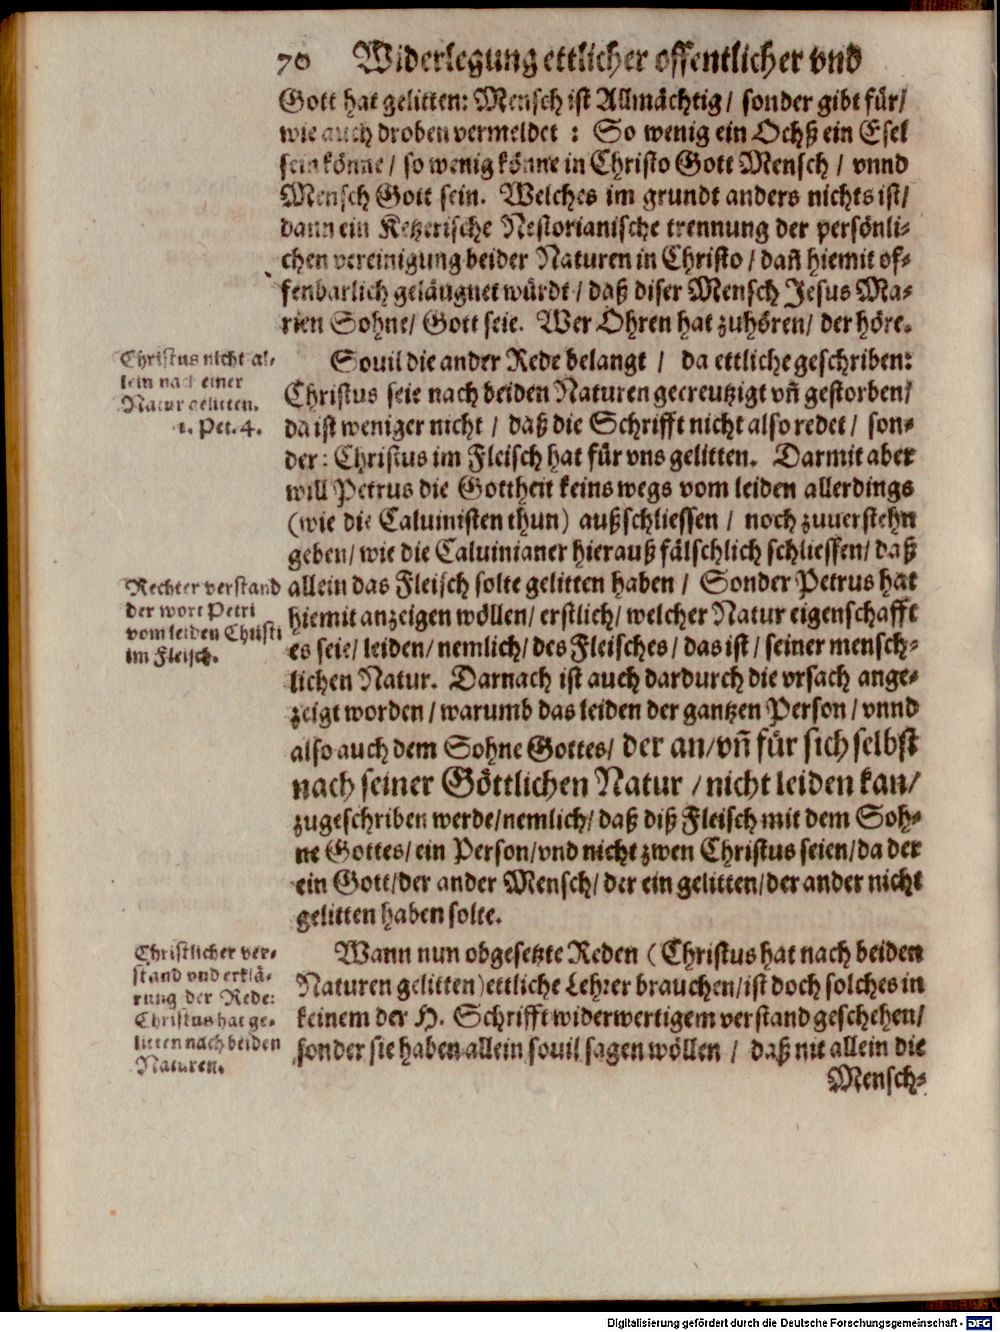 70 Widerlegung ettlicher offentlicher vnd
Gott hat gelitten: Mensch ist Allmächtig/ sonder gibt für/
wie auch droben vermeldet : So wenig ein Ochß ein Esel
sein könne/ so wenig könne in Christo Gott Mensch / vnnd
Mensch Gott sein. Welches im grundt anders nichts ist/
dann ein Ketzerische Nestorianische trennung der persönli-
chen vereinigung beider Naturen in Christo / dañ hiemit of-
fenbarlich geläugnet würdt / daß diser Mensch Jesus Ma-
rien Sohne/ Gott seie. Wer Ohren hat zuhören/ der höre.
Christus nicht al-
lein nach einer
Natur gelitten.
1. Pet. 4.
Souil die ander Rede belangt / da ettliche geschriben:
Christus seie nach beiden Naturen gecreutzigt vñ gestorben/
da ist weniger nicht / daß die Schrifft nicht also redet / son-
der: Christus im Fleisch hat für vns gelitten. Darmit aber
will Petrus die Gottheit keins wegs vom leiden allerdings
(wie die Caluinisten thun) außschliessen / noch zuuerstehn
geben/ wie die Caluinianer hierauß fälschlich schliessen/ daß
Rechter verstand
der wort Petri
vom leiden Christi
im Fleisch.
allein das Fleisch solte gelitten haben / Sonder Petrus hat
hiemit anzeigen wöllen/ erstlich/ welcher Natur eigenschafft
es seie/ leiden/ nemlich/ des Fleisches / das ist / seiner mensch-
lichen Natur. Darnach ist auch dardurch die vrsach ange-
zeigt worden / warumb das leiden der gantzen Person / vnnd
also auch dem Sohne Gottes/ der an/ vñ für sich selbst
nach seiner Göttlichen Natur / nicht leiden kan/
zugeschriben werde/ nemlich/ daß diß Fleisch mit dem Soh-
ne Gottes/ ein Person/ vnd nicht zwen Christus seien/ da der
ein Gott/ der ander Mensch/ der ein gelitten/ der ander nicht
gelitten haben solte.
Christlicher ver-
stand vnd erklä-
rung der Rede:
Christus hat ge-
litten nach beiden
Naturen.
Wann nun obgesetzte Reden (Christus hat nach beiden
Naturen gelitten) ettliche Lehrer brauchen/ ist doch solches in
keinem der H. Schrifft widerwertigem verstand geschehen/
sonder sie haben allein souil sagen wöllen / daß nit allein die
Mensch-
Digitalisierung gefördert durch die Deutsche Forschungsgemeinschaft - DFG